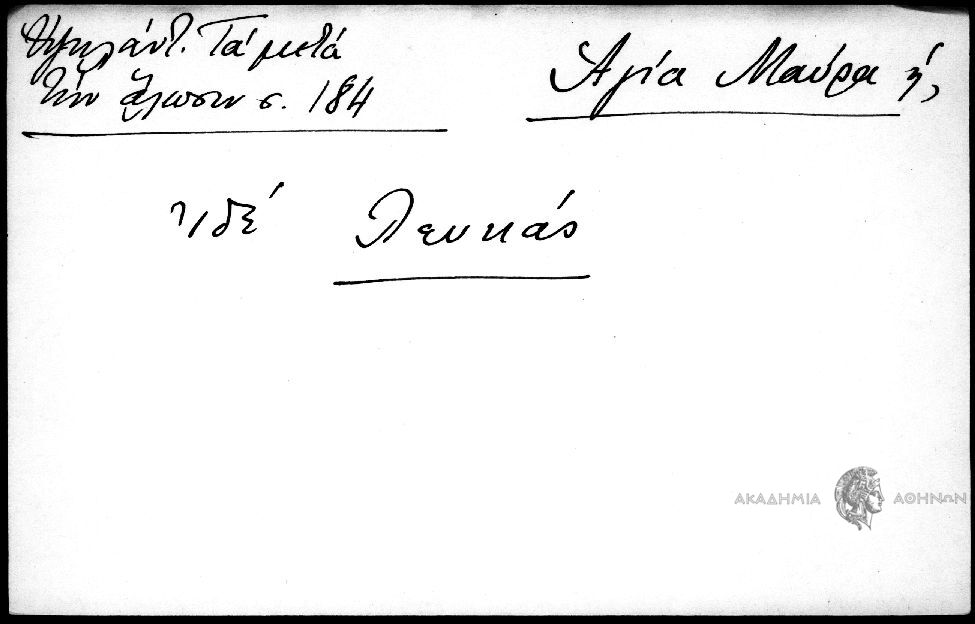 Ὑψηλάντ. Τά μετά
τήν ἅλωσιν σ. 184
Ἁγία Μαύρα ἡ,
ἰδέ Λευκάς
ΑΚΑΔΗΜΙΑ ΑΘΗΝΩΝ